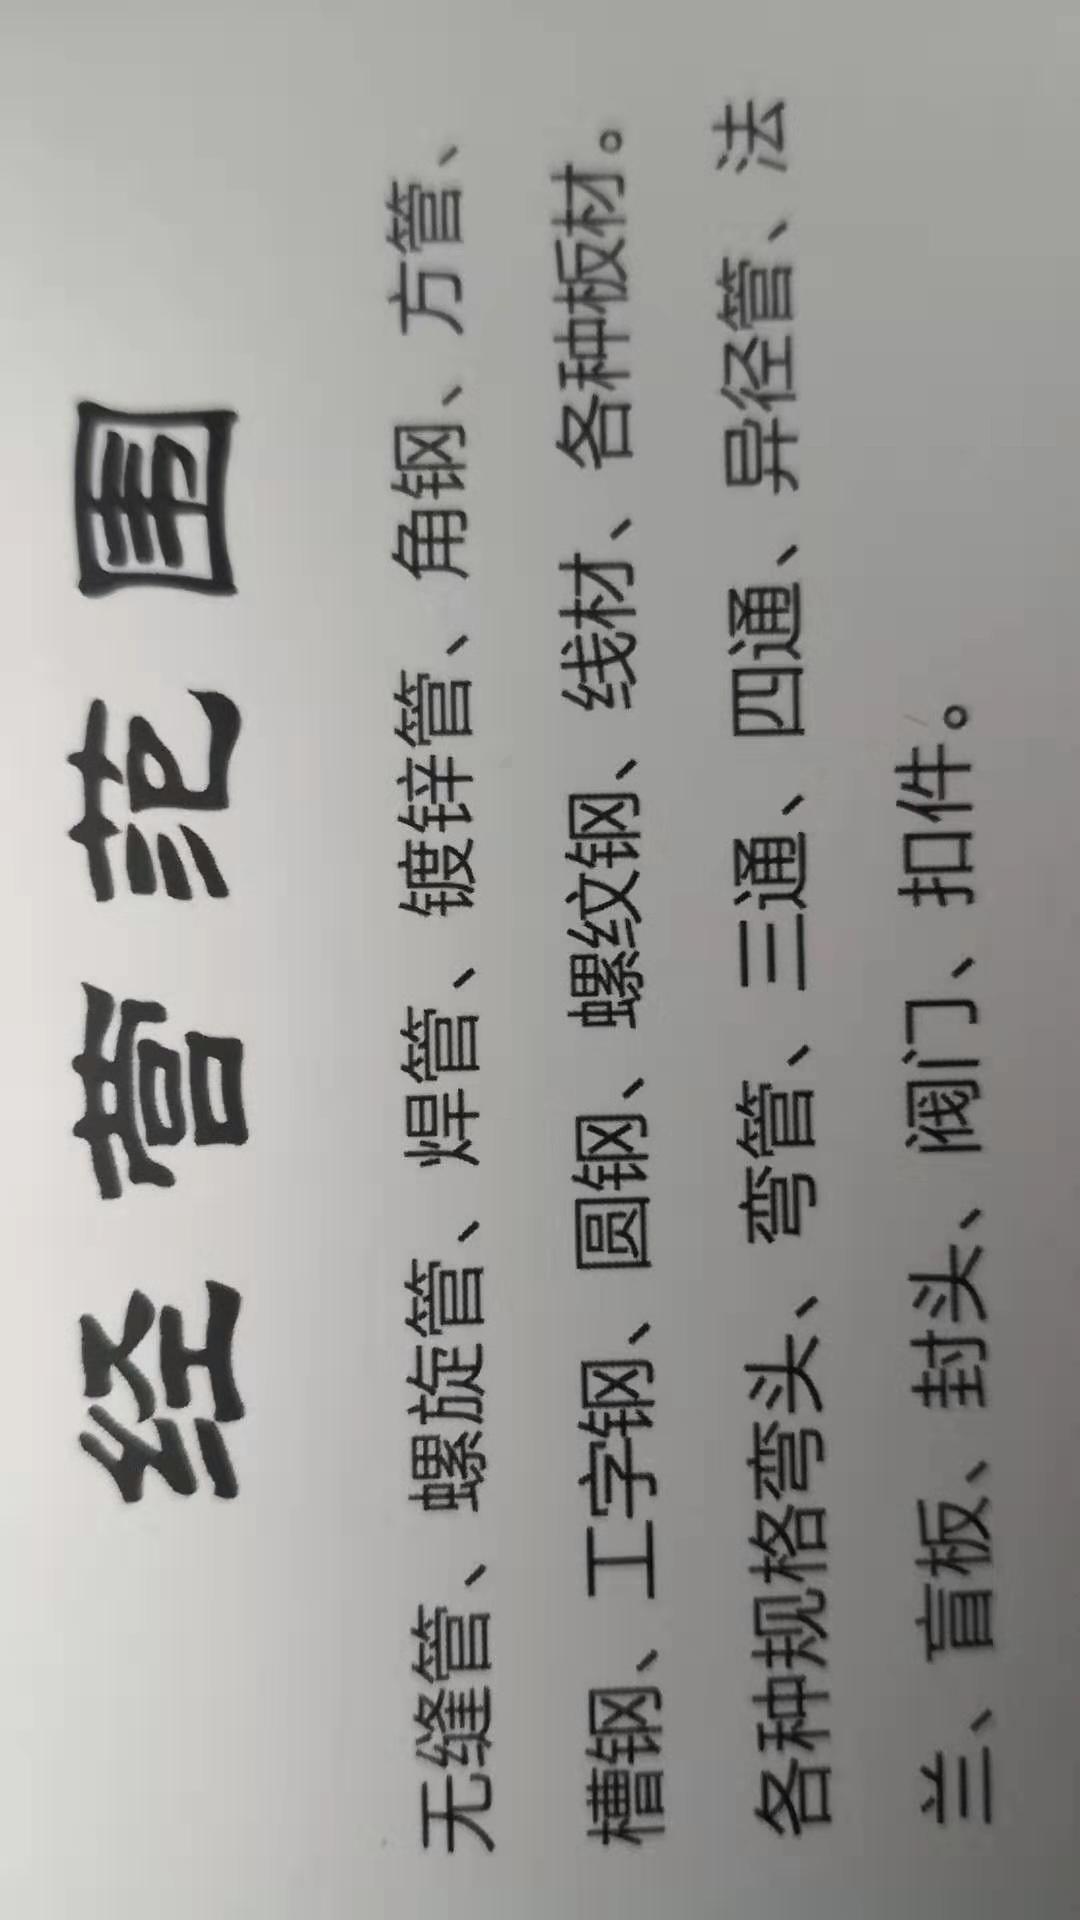 经营范围
无缝管、螺旋管、焊管、镀锌管、角钢、方管、
槽钢、工字钢、圆钢、螺纹钢、线材、各种板材。
各种规格弯头、弯管、三通、四通、异径管、法
兰、盲板、封头、阀门、扣件。